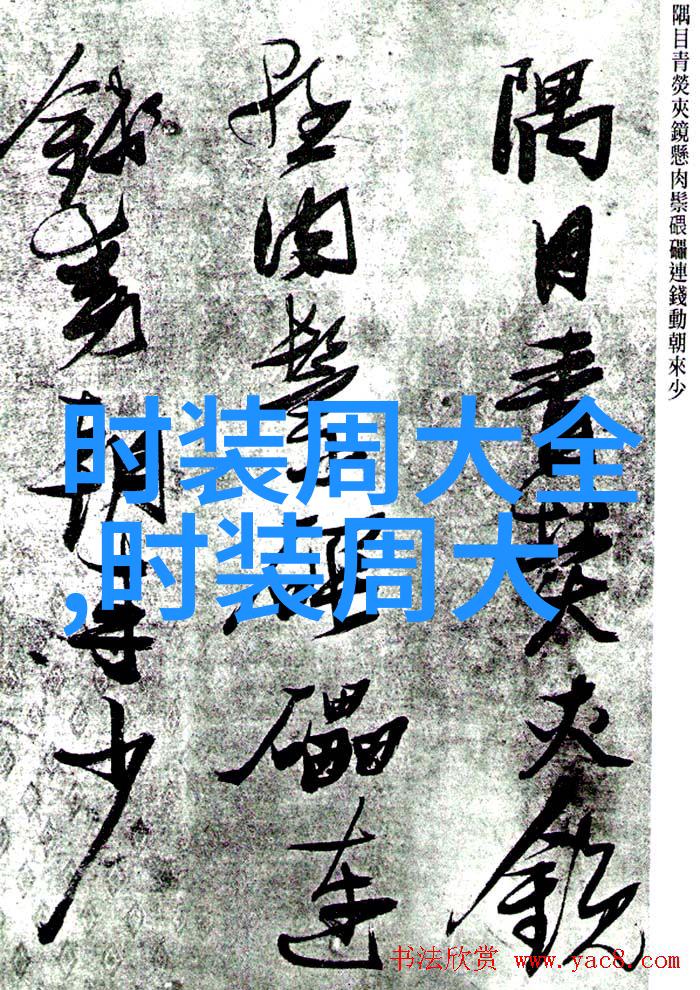 隅目青熒夾鏡懸肉鬃碨礌連錢動朝來少
隅目青熒夾鏡
懸肉鬃碨礌連
錢動朝來少
时装周大全
,时装周大
书法欣赏 www.yac8.com